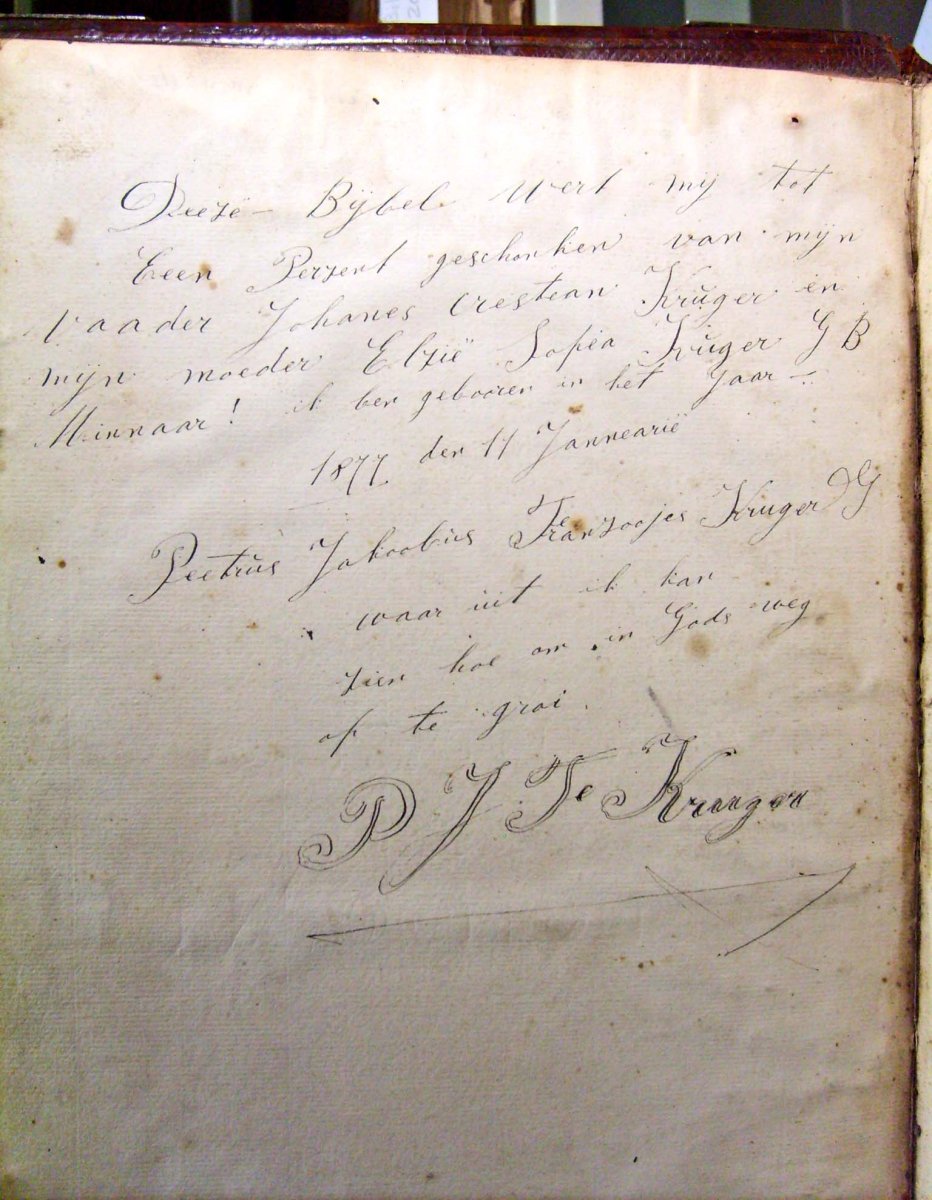 Deezë Bÿbel Wert mij tot
Eeen Perzent geschonken van mijn
Vaader Johanes Crestean Kruger en
mijn moeder Elzië Sofea Kruger G B
Minnaar! ik ben gebooren in het Jaar
1877 den 11 Jannearië
Peetrus Jakoobus Franzoojes Kruger G
waar uit ik kan
zien hoe om in Gods weg
op te groi.
P J F Kruuger